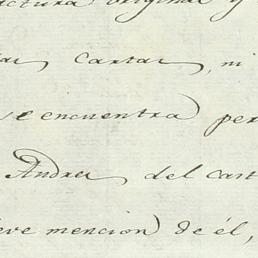 original y
Cartas, ni
se encuentra per
Andres del Cast
eve mencion de él,